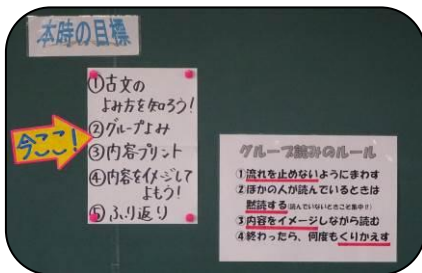 本時の目標
①古文の
よみ方を知ろう!
②グループよみ
③内容プリント
④内容をイメージして
よもう!
⑤ふり返り
今ここ!
グループ読みのルール
①流れを止めないようにまわす
②ほかの人が読んでいるときは
黙読する(読んでいないときこそ集中!!)
③内容をイメージしながら読む
④終わったら、何度もくりかえす